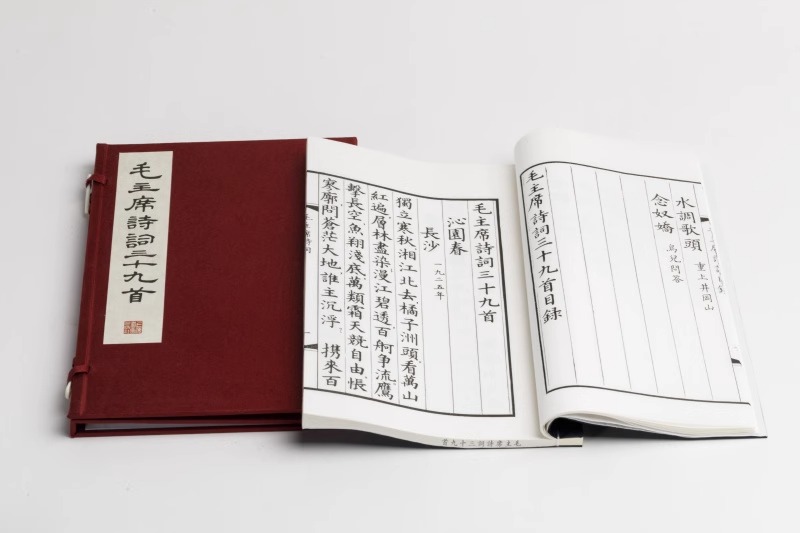 毛主席詩詞三十九首
水調歌頭 重上井岡山
念奴嬌 鳥兒問答
毛主席詩詞三十九首目錄
毛主席詩詞三十九首
沁園春
長沙 一九二五年
獨立寒秋湘江北去橘子洲頭看萬山
紅遍層林盡染漫江碧透百舸爭流鷹
擊長空魚翔淺底萬類霜天競自由悵
寥廓問蒼茫大地誰主沉浮 携來百
毛主席詩詞
毛主席詩詞三十九首